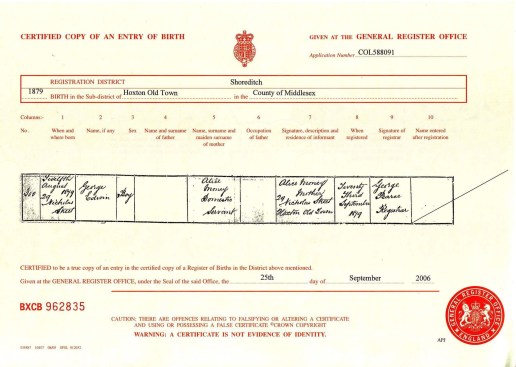 CERTIFIED COPY OF AN ENTRY OF BIRTH
GIVEN AT THE GENERAL REGISTER OFFICE
Application Number COL588091
REGISTRATION DISTRICT Shoreditch
1879 BIRTH in the Sub-district of Hoxton Old Town in the County of Middlesex
Columns:- 1 2 3 4 5 6 7 8 9 10
No. When and where born Name, if any Sex Name and surname of father Name, surname and maiden surname of mother Occupation of father Signature, description and residence of informant When registered Signature of registrar Name entered after registration
Twelfth August 1879 29 Nicholas Street
George Edwin
Boy
Alice Money Domestic Servant
Alice Money Mother 29 Nicholas Street Hoxton Old Town
Twenty Third September 1879
George Pearse Registrar
CERTIFIED to be a true copy of an entry in the certified copy of a Register of Births in the District above mentioned.
Given at the GENERAL REGISTER OFFICE, under the Seal of the said Office, the 25th day of September 2006
BXCB 962835
CAUTION: THERE ARE OFFENCES RELATING TO FALSIFYING OR ALTERING A CERTIFICATE
AND USING OR POSSESSING A FALSE CERTIFICATE ©CROWN COPYRIGHT
WARNING: A CERTIFICATE IS NOT EVIDENCE OF IDENTITY.
GENERAL REGISTER OFFICE
ENGLAND